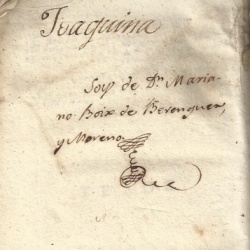 Joaquina
Soy de Dn. Maria-
no Boix de Berenguer,
y Moreno